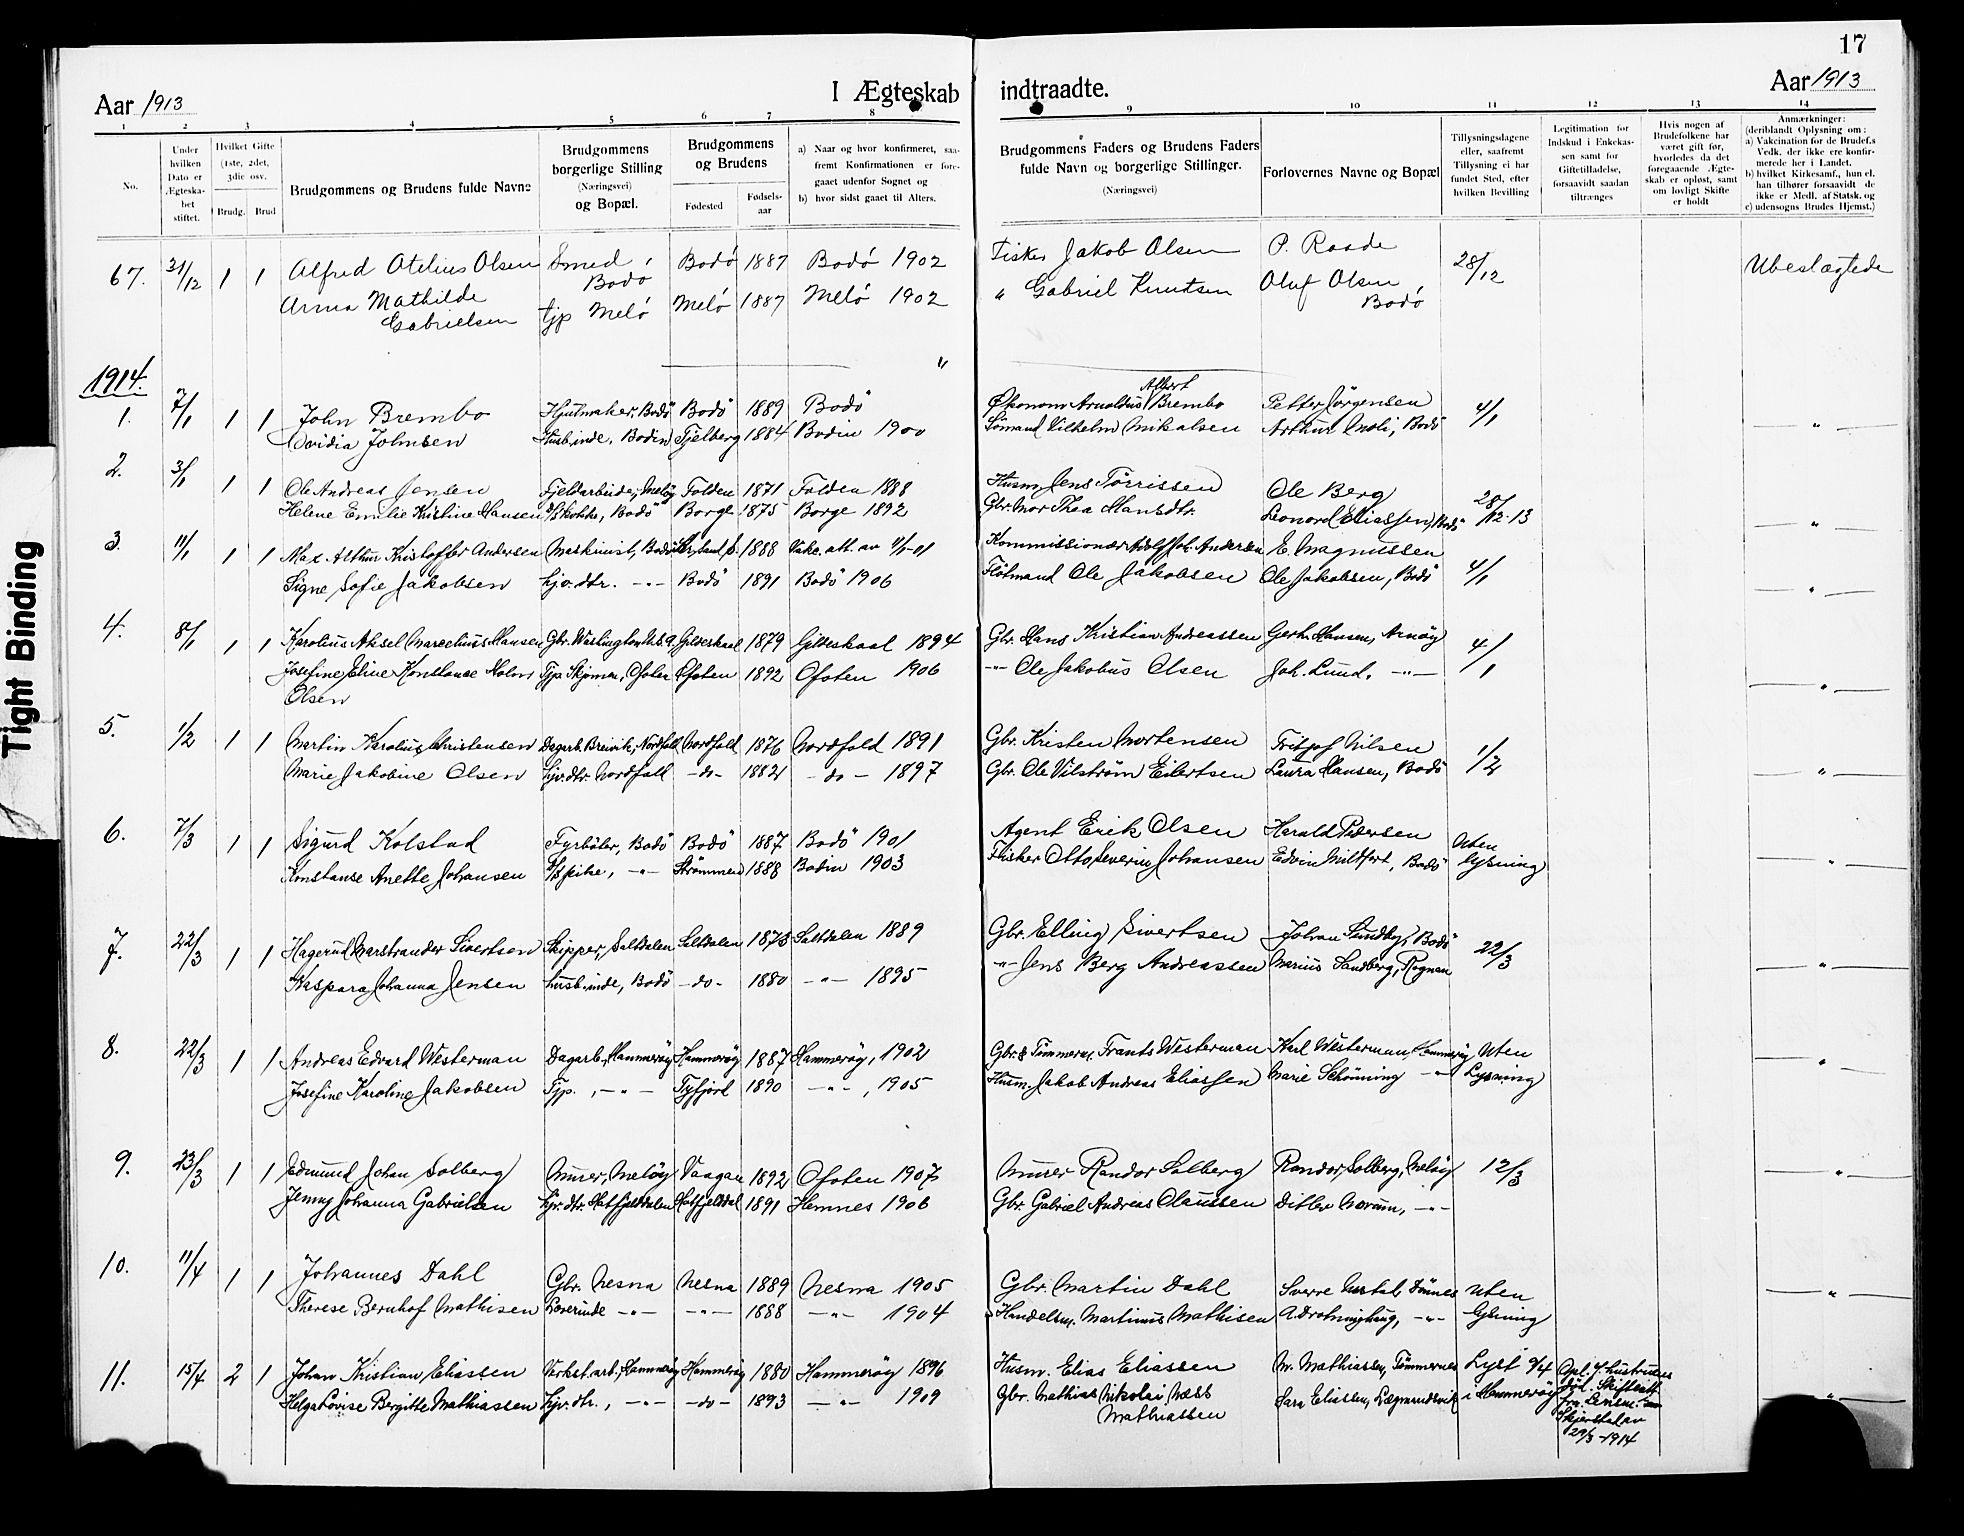 17
Aar 1913
I Ægteskab indtraadte.
Aar 1913
1 2 3 4 5 6 7 8 9 10 11 12 13 14
No.
Under hvilken Dato er Ægteskabet stiftet.
Hvilket Gifte (1ste, 2det, 3die osv.
Brudg. Brud
Brudgommens og Brudens fulde Navne
Brudgommens borgerlige Stilling (Næringsvei) og Bopæl.
Brudgommens og Brudens
Fødested Fødselsaar
a) Naar og hvor konfirmeret, saafremt Konfirmationen er foregaaet udenfor Sognet og
b) hvor sidst gaaet til Alters.
Brudgommens Faders og Brudens Faders fulde Navn og borgerlige Stillinger. (Næringsvei)
Forlovernes Navne og Bopæl
Tillysningsdagene eller, saafremt Tillysning ei har fundet Sted, efter hvilken Bevilling
Legitimation for Indskud i Enkekassen samt for Giftetilladelse, forsaavidt saadan tiltrænges
Hvis nogen af Brudefolkene har været gift før, hvorledes da det foregaaende Ægteskab er opløst, samt om lovligt Skifte er holdt
Anmærkninger: (deriblandt Oplysning om: a) Vakcination for de Brudef.s Vedk. der ikke ere konfirmerede her i Landet. b) hvilket Kirkesamf., hun el. han tilhører forsaavidt de ikke er Medl. af Statsk. og c) udensogns Brudes Hjemst.)
67. 31/12 1 1 Alfred Otelius Olsen Smed, Bodø Bodø 1887 Bodø 1902 Fisker Jakob Olsen P. Raade 28/12 Ubeslægtede
Anna Mathilde Gabrielsen tjp Melø Melø 1887 Melø 1902 " Gabriel Knutsen Oluf Olsen Bodø
1914.
1. 7/1 1 1 John Brembo Hjulmaker, Bodö Bodö 1889 Bodö " Økonom Arnoldus Albert Brembo Petter Jörgensen 4/1 — " —
Ovidia Johnsen Husb.inde, Bodin Fjelberg 1884 Bodin 1900 Sömand Vilhelm Mikalsen Arthur Moli, Bodö
2. 3/1 1 1 Ole Andreas Jensen Fjeldarbeide, Melöy Folden 1871 Folden 1888 Husm. Jens Törrissen Ole Berg 28/12-13 — " —
Helene Emilie Kristine Hansen Bodö Borge 1875 Borge 1892 Gbr. Mor Thea Hansdtr. Leonord Eliassen, Bodö
3. 11/1 1 1 Max Arthur Kristoffer Andersen Maskinist, Bodö 1888 Vakc. att. av Kommissionær Adolf Joh. Andersen E. Magnussen 4/1 — " —
Signe Sofie Jakobsen hjv. dtr. -"- Bodö 1891 Bodö 1906 Flötmand Ole Jakobsen Ole Jakobsen, Bodö
4. 8/1 1 1 Karolius Aksel Marcelius Hansen Gbr. Washington U.S.A. Gildeskaal 1879 Gildeskaal 1894 Gbr. Hans Kristian Andreassen Gerh. Hansen, Arnöy 4/1 — " —
Josefine Eline Konstanse Holm Olsen Tjp. Skjomen, Ofoten Ofoten 1892 Ofoten 1906 -"- Ole Jakobus Olsen Joh. Lund. -"-
5. 1/2 1 1 Martin Karolius Christensen Dagarb. Breivik, Nordfold Nordfold 1876 Nordfold 1891 Gbr. Kristen Mortensen Fritjof Nilsen 1/2 — " —
Marie Jakobine Olsen hjv. dtr. Nordfold -do- 1882 -do- 1897 Gbr. Ole Vilström Eilertsen Laura Hansen, Bodö
6. 7/3 1 1 Sigurd Kolstad Fyrböter, Bodö Bodö 1887 Bodö 1901 Agent Erik Olsen Harald Pedersen Uten lysning — " —
Konstanse Anette Johansen T/s pike, -"- Strömmen 1888 Bodin 1903 Fisker Otto Severin Johansen Edvin Mildfort, Bodö
7. 22/3 1 1 Hagerud Marstrander Sivertsen Skipper, Saltdalen Saltdalen 1873 Saltdalen 1889 Gbr. Elling Sivertsen Johan Sundby, Bodö 22/3 — " —
Kaspara Johanna Jensen husb.inde, Bodö -do- 1880 -"- 1895 -"- Jens Berg Andreassen Marius Sandberg, Rognan
8. 22/3 1 1 Andreas Edvard Westerman Dagarb., Hammeröy Hammeröy 1887 Hammeröy, 1902 Gbr. & Tömmerm. Frants Westerman Karl Westerman, Hammeröy Uten Lysning "
Josefine Karoline Jakobsen Tjp., -"- Tysfjord 1890 -"-, 1905 Husm. Jakob Andreas Eliassen Marie Schönning -"-
9. 23/3 1 1 Edmund Johan Solberg Murer, Melöy Vaagan 1892 Ofoten 1907 Murer Randor Solberg Randor Solberg, Melöy 12/3 — " —
Jenny Johanna Gabrielsen hjv. dtr. Hatfjelddalen Hatfjelddal 1891 Hemnes 1906 Gbr. Gabriel Andreas Claussen Ditlev Norum, -"-
10. 11/4 1 1 Johannes Dahl Gbr. Nesna Nesna 1889 Nesna 1905 Gbr. Martin Dahl Sverre Dönnes Uten lysning — " —
Therese Bernhof Mathisen Lærerinde -"- -"- 1888 -"- 1904 Handelsm. Martinus Mathisen A. Drotninghaug, -"-
11. 15/4 2 1 Johan Kristian Eliassen Verkst.arb., Hammeröy Hammeröy 1880 Hammeröy 1896 Husm. Elias Eliassen M. Mathiassen, Tömmernes Lyst 9/4 i Hammeröy — " —
Helga Lovise Bergitte Mathiassen hjv. dtr., -"- -do- 1893 -"- 1909 Gbr. Mathias Nikolai Næss Mathiassen Sara Eliassen, Lægmundsvik
Skifteatt. fra Lensm. Skjerstad av 29/3-1914
Tight Binding